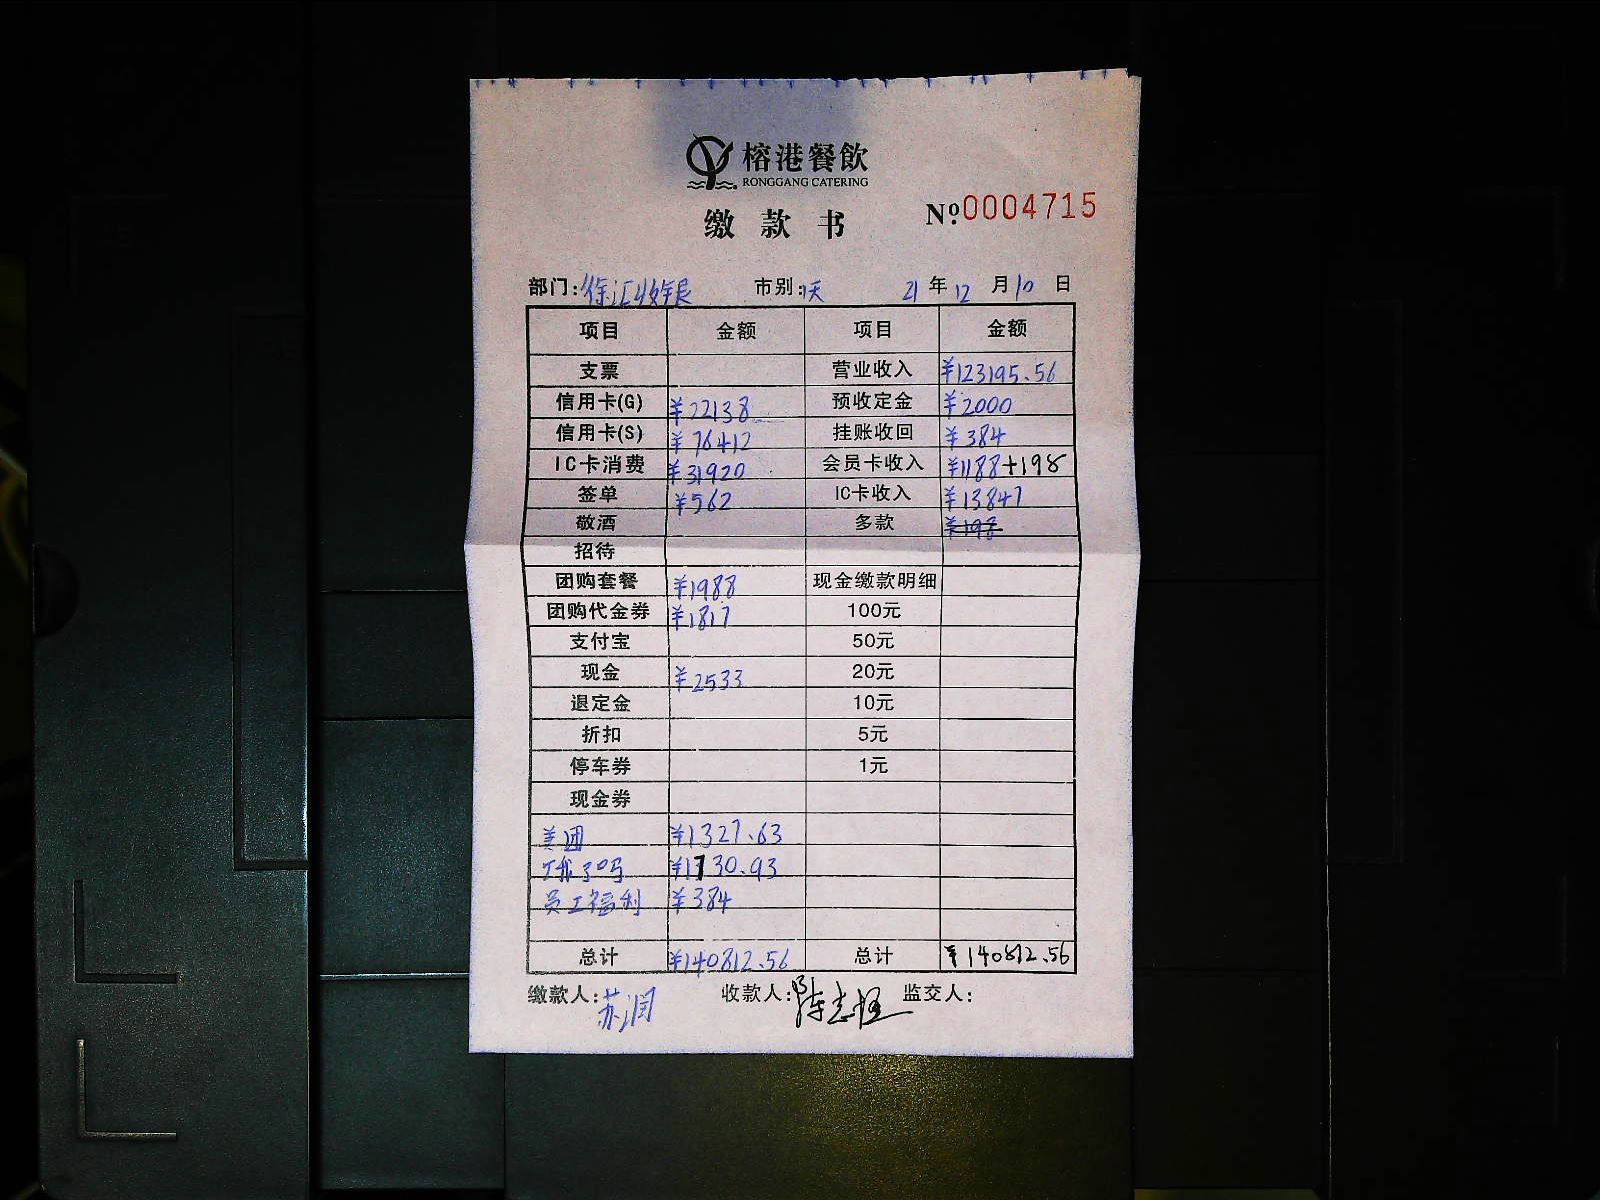 榕港餐飲
RONGGANG CATERING
缴款书
№:0004715
部门:徐汇收银 市别: 21年12月10日
项目 金额 项目 金额
支票 营业收入 ¥123195.56
信用卡(G) ¥22138 预收定金 ¥2000
信用卡(S) ¥76412 挂账收回 ¥384
IC卡消费 ¥31920 会员卡收入 ¥1188+198
签单 ¥562 IC卡收入 ¥13847
敬酒 多款 ¥198
招待
团购套餐 ¥1988 现金缴款明细
团购代金券 ¥1817 100元
支付宝 50元
现金 ¥2533 20元
退定金 10元
折扣 5元
停车券 1元
现金券
美团 ¥1327.63
饿了吗 ¥1730.93
员工福利 ¥384
总计 ¥140812.56 总计 ¥140812.56
缴款人:苏润 收款人:陈志 监交人: